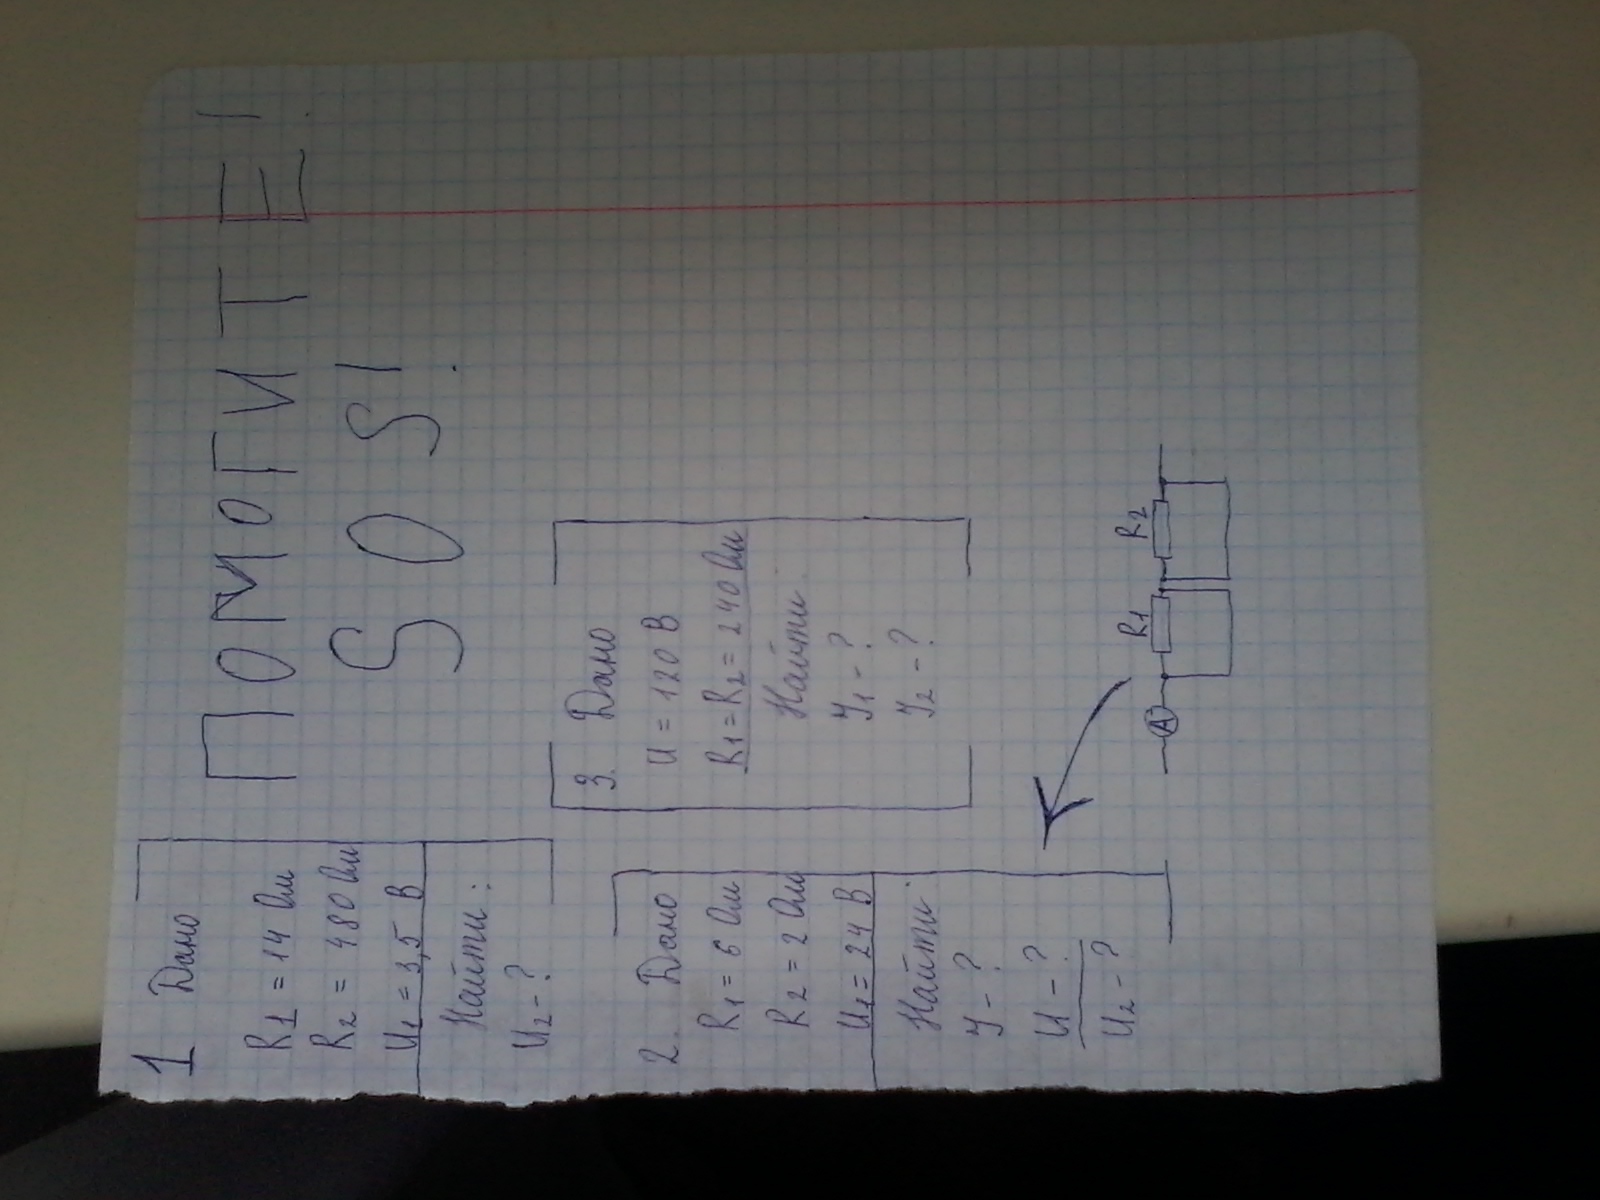 ПОМОГИТЕ!
SOS!
1 Дано
R1 = 14 Ом
R2 = 480 Ом
U1 = 3,5 В
Найти:
U2 - ?
2. Дано
R1 = 6 Ом
R2 = 2 Ом
U1 = 24 В
Найти
У - ?
U - ?
U2 - ?
3. Дано
U = 120 В
R1 = R2 = 240 Ом
Найти
У1 - ?
У2 - ?
A R1 R2